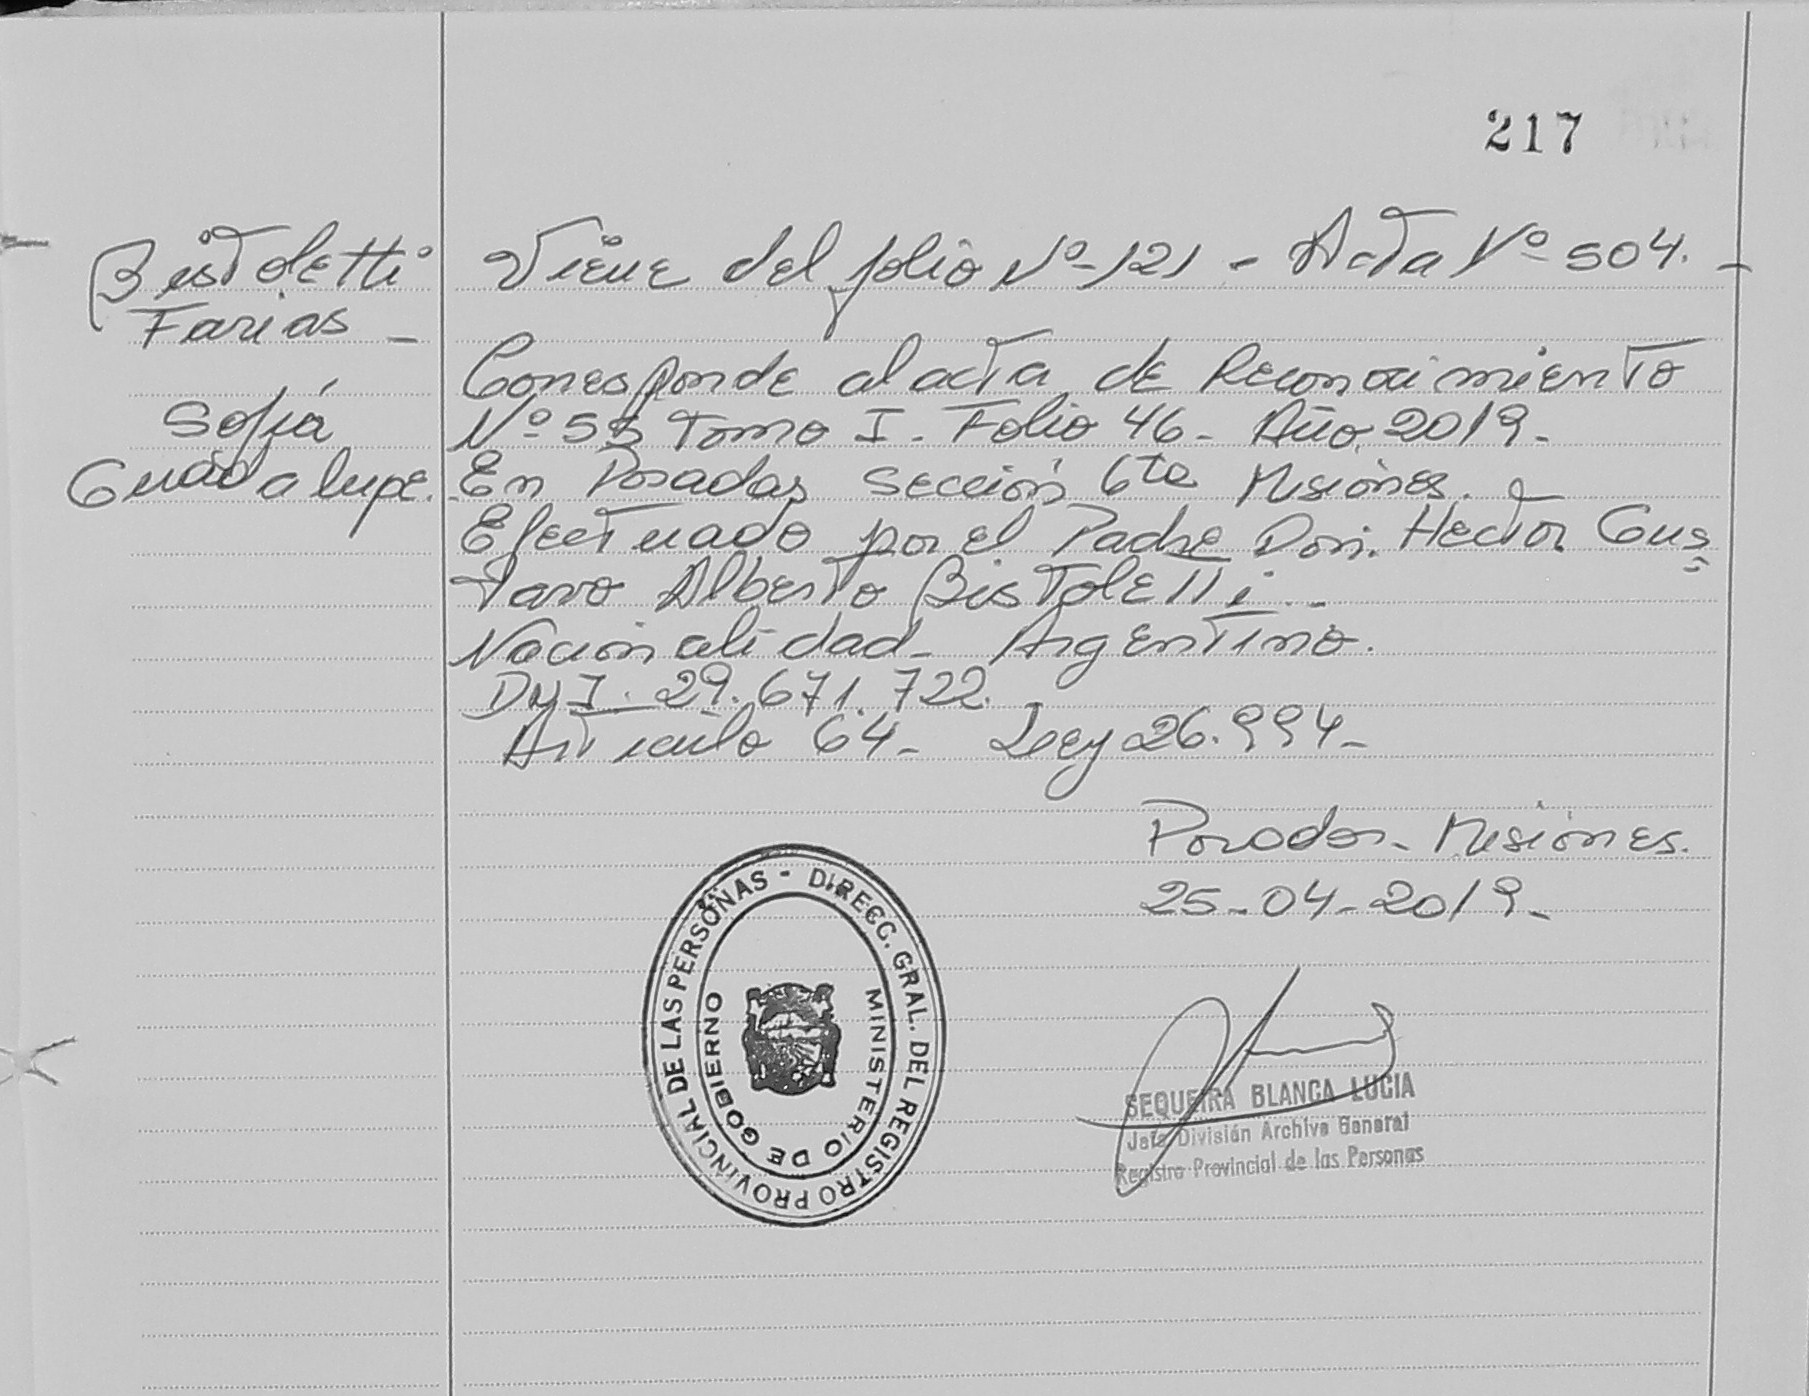 217
Bistoletti
Farias _
Sofía
Guadalupe.
Viene del folio Nº 121 - Acta Nº 504. -
Corresponde al acta de Reconocimiento
Nº 55 Tomo I. Folio 46 - Año 2019.
En Posadas Sección 6ta Misiones.
Efectuado por el Padre Don. Hector Gus=
tavo Alberto Bistoletti. -
Nacionalidad - Argentino.
DNI. 29.671.722.
Articulo 64 - Ley 26.994 -
Posadas - Misiones.
25-04-2019 -
DIRECC. GRAL. DEL REGISTRO PROVINCIAL DE LAS PERSONAS -
MINISTERIO DE GOBIERNO
SEQUEIRA BLANCA LUCIA
Jefe División Archivo General
Registro Provincial de las Personas